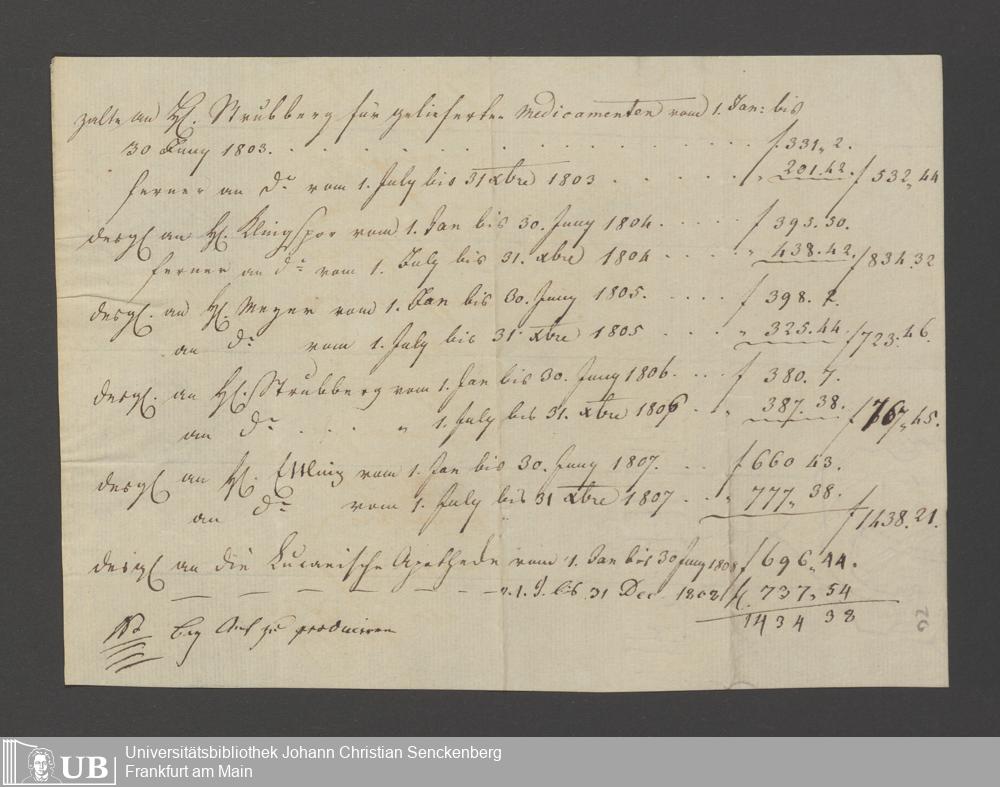 zalte an H. Strubberg für gelieferte Medicamenten vom 1. Jan: bis
30 Juny 1803. . . . . . . . . . . . . . . f 331„ 2.
ferner an do vom 1. July bis 31 Xbre 1803 . . . . . „ 201. 42. f 532„ 44
desgl. an H. Klingspor vom 1. Jan bis 30. Juny 1804. . . . . f 395. 50.
ferner an do vom 1. July bis 31. Xbre 1804 . . . . „ 438. 42. f 834. 32
desgl. an H. Meyer vom 1. Jan bis 30. Juny 1805. . . . . f 398. 2.
an do vom 1. July bis 31 Xbre 1805 . . . „ 325. 44. f 723. 46.
desgl. an H. Strubberg vom 1. Jan bis 30. Juny 1806. . . . f 380. 7.
an do . . . „ 1. July bis 31. Xbre 1806 . „ 387. 38. f 767„ 45.
desgl an H. vom 1. Jan bis 30. Juny 1807. . . f 660 43.
an do vom 1. July bis 31 Xbre 1807 . . „ 777„ 38. f 1438. 21.
desgl an die Lucanische Apotheke vom 1. Jan bis 30 Juny 1808 f 696„ 44.
— — — — — — — v. 1. J. bis 31 Dec 1808 f. 737„ 54
1434 38
NB bey zu produciren
92
UB
Universitätsbibliothek Johann Christian Senckenberg
Frankfurt am Main